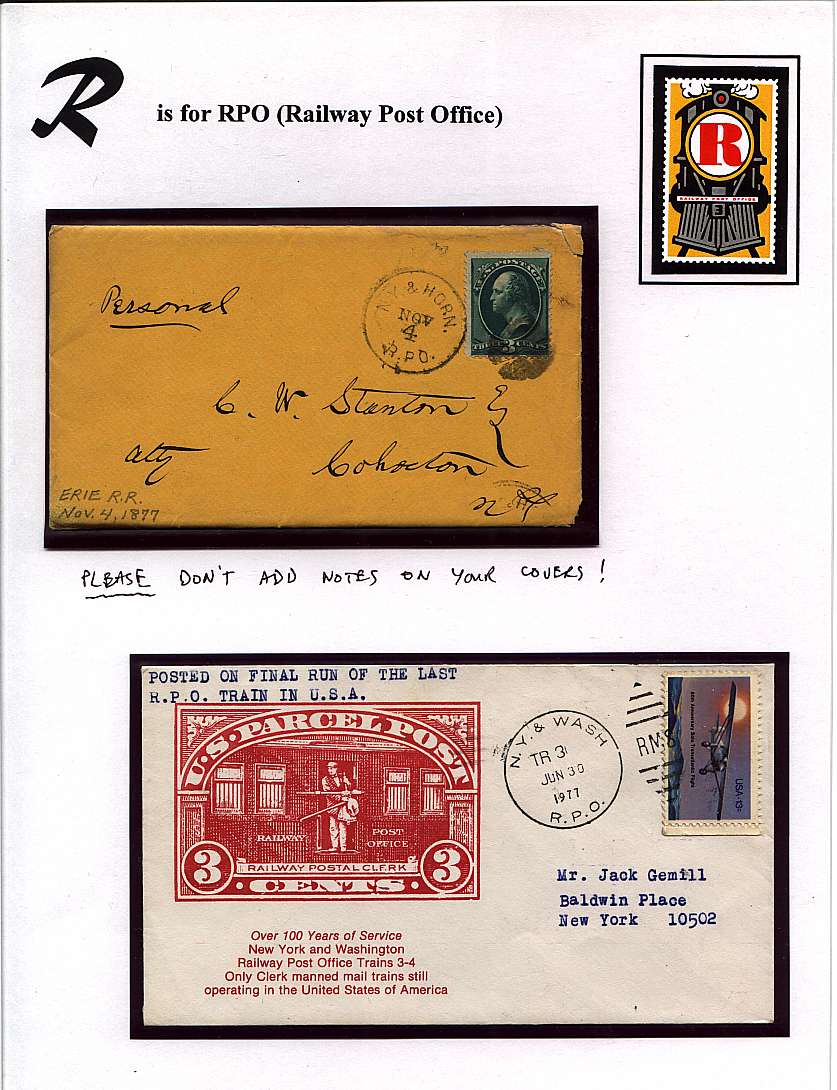 R is for RPO (Railway Post Office)
R
RAILWAY POST OFFICE
3
Personal
N.Y. & HORN.
NOV
4
R.P.O.
U.S. POSTAGE
THREE 3 CENTS
C. W. Stanton Esq
atty Cohocton
N.Y.
ERIE R.R.
Nov. 4, 1877
PLEASE DON'T ADD NOTES ON YOUR COVERS!
POSTED ON FINAL RUN OF THE LAST
R.P.O. TRAIN IN U.S.A.
U.S. PARCEL POST
RAILWAY POST
OFFICE
RAILWAY POSTAL CLERK
3 CENTS 3
Over 100 Years of Service
New York and Washington
Railway Post Office Trains 3-4
Only Clerk manned mail trains still
operating in the United States of America
N.Y. & WASH
TR 3
JUN 30
1977
R.P.O.
RMS
50th Anniversary Solo Transatlantic Flight
USA 13c
Mr. Jack Gemill
Baldwin Place
New York 10502